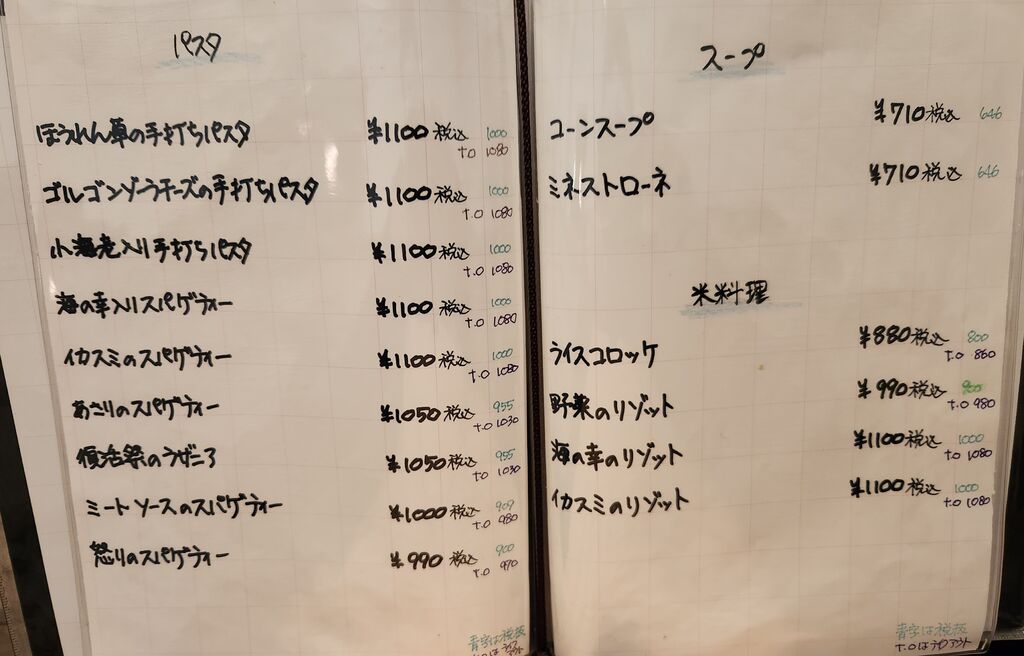 パスタ
ほうれん草の手打ちパスタ ¥1100 税込 1000
T.O 1080
ゴルゴンゾーラチーズの手打ちパスタ ¥1100 税込 1000
T.O 1080
小海老入り手打ちパスタ ¥1100 税込 1000
T.O 1080
海の幸入りスパゲティー ¥1100 税込 1000
T.O 1080
イカスミのスパゲティー ¥1100 税込 1000
T.O 1080
あさりのスパゲティー ¥1050 税込 955
T.O 1030
復活祭のラザニア ¥1050 税込 955
T.O 1030
ミートソースのスパゲティー ¥1000 税込 909
T.O 980
怒りのスパゲティー ¥990 税込 900
T.O 970
青字は税抜
T.Oはテイクアウト
スープ
コーンスープ ¥710 税込 646
ミネストローネ ¥710 税込 646
米料理
ライスコロッケ ¥880 税込 800
T.O 860
野菜のリゾット ¥990 税込 900
T.O 980
海の幸のリゾット ¥1100 税込 1000
T.O 1080
イカスミのリゾット ¥1100 税込 1000
T.O 1080
青字は税抜
T.Oはテイクアウト